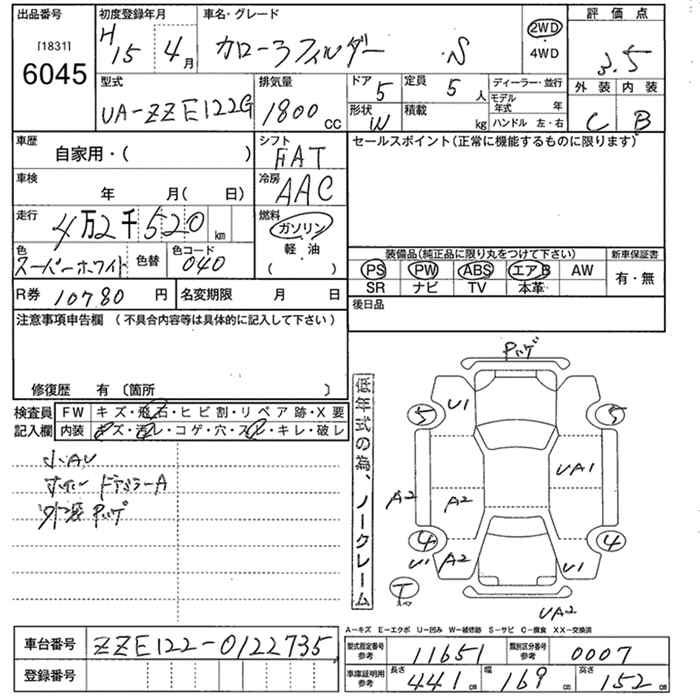 出品番号 初度登録年月 車名・グレード 評価点
[1831] H15 4月 カローラフィルダー S 2WD 4WD 3.5
6045
型式 排気量 ドア 定員 ディーラー・並行 外装 内装
UA-ZZE122G 1800cc 5 5人 モデル年式 年 C B
形状 W 積載 kg ハンドル 左・右
車歴 シフト セールスポイント(正常に機能するものに限ります)
自家用・( ) FAT
車検 冷房
年 月( 日) AAC
走行 燃料
4万2千520km ガソリン
色 色替 色コード 軽油
スーパーホワイト 040 ( )
装備品(純正品に限り丸をつけて下さい) 新車保証書
PS PW ABS エアB AW 有・無
SR ナビ TV 本革
R券 10780円 名変期限 月 日 後日品
注意事項申告欄(不具合内容等は具体的に記入して下さい)
修復歴 有 〔箇所 〕
検査員 FW キズ・飛石・ヒビ割・リペア跡・X要
記入欄 内装 キズ・汚レ・コゲ・穴・スレ・キレ・破レ
小AU
ドアミラーA
外装
現状販売の為、ノークレーム
5 U1 5
UA1
A2 A2
4 U1 A2 U1 4
T
UA2
A-キズ E-エクボ U-凹み W-補修跡 S-サビ C-腐食 XX-交換済
車台番号 ZZE122-0122735
型式指定番号 参考 11651 類別区分番号 参考 0007
登録番号
車庫証明用 参考 長さ 441cm 幅 169cm 高さ 152cm